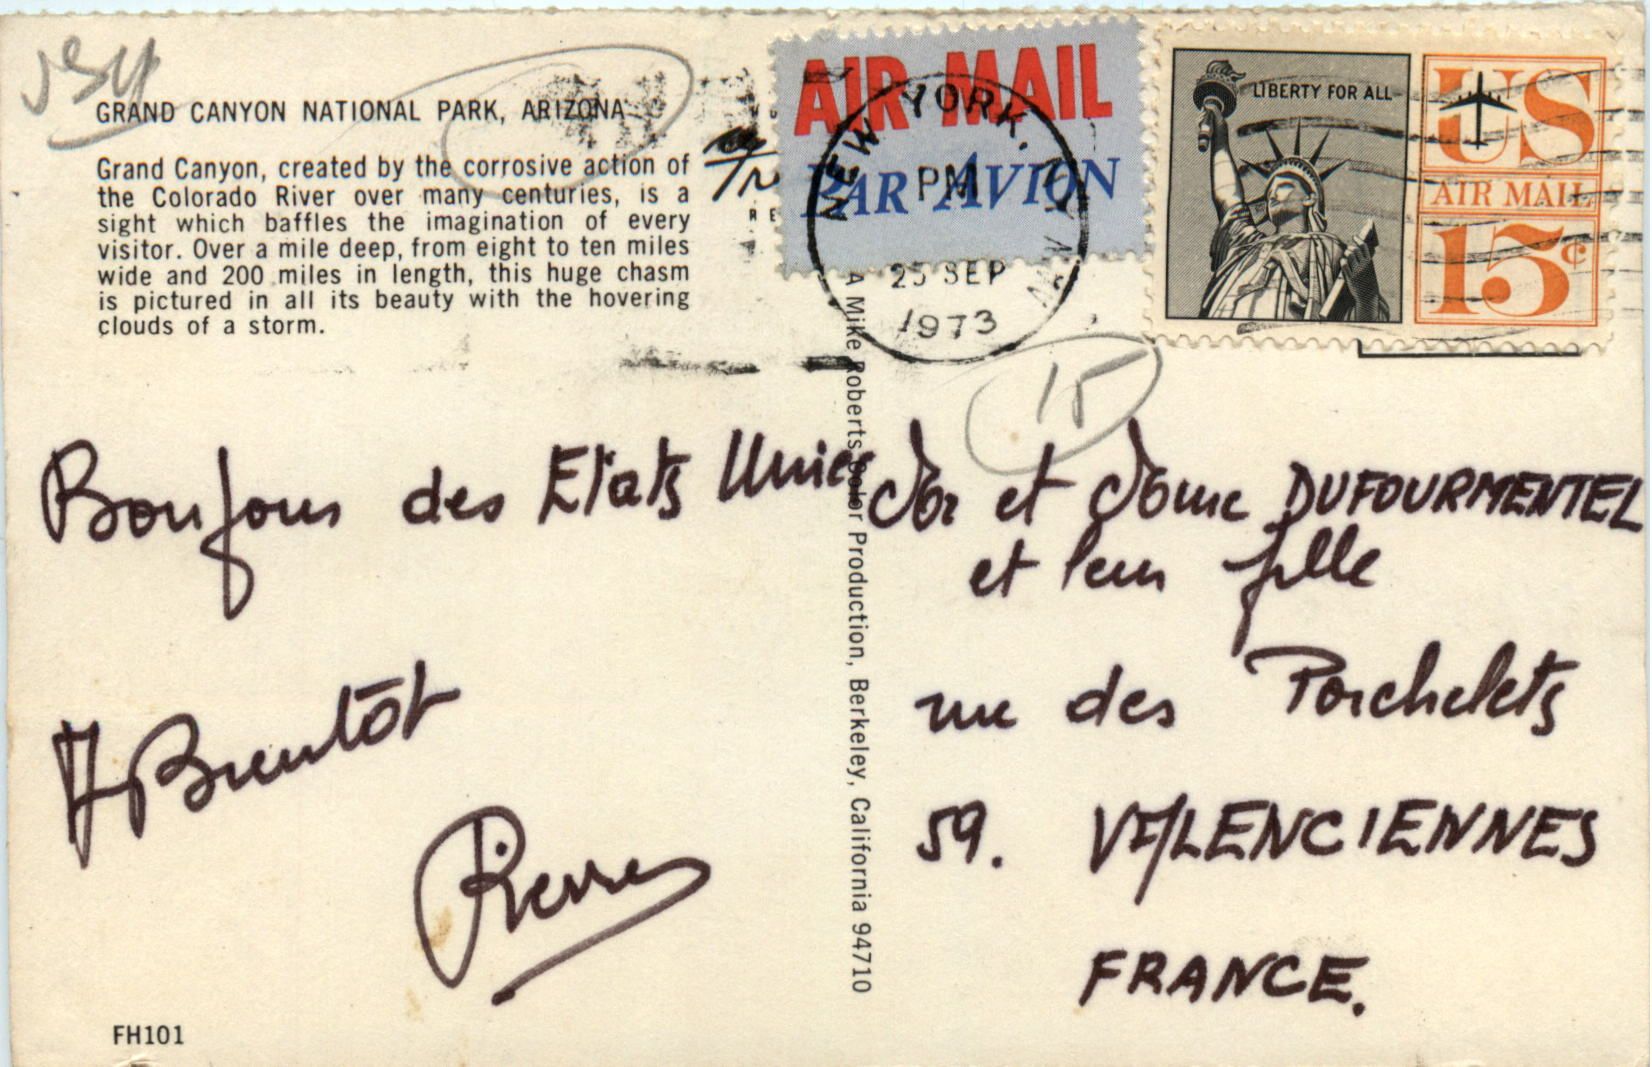 GRAND CANYON NATIONAL PARK, ARIZONA
Grand Canyon, created by the corrosive action of
the Colorado River over many centuries, is a
sight which baffles the imagination of every
visitor. Over a mile deep, from eight to ten miles
wide and 200 miles in length, this huge chasm
is pictured in all its beauty with the hovering
clouds of a storm.
AIR MAIL
PAR AVION
NEW YORK, N.Y.
PM
25 SEP
1973
LIBERTY FOR ALL
US
AIR MAIL
15¢
15
Bonjour des Etats Unies
A Bientôt
Pierre
A Mike Roberts Color Production, Berkeley, California 94710
et DUFOURMENTEL
et leur fille
rue des Porchelets
59. VALENCIENNES
FRANCE.
FH101